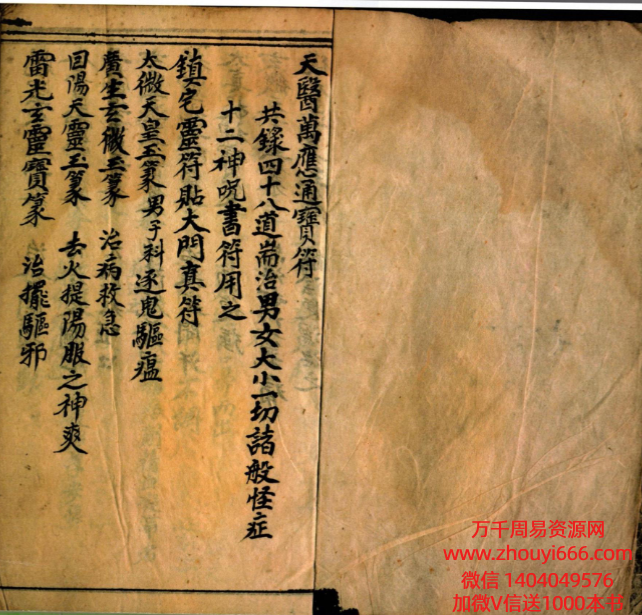 天醫萬應通寶符
共錄四十八道耑治男女大小一切諸般怪症
十二神咒書符用之
鎮宅靈符貼大門真符
太微天皇玉篆男子科逐鬼驅瘟
廣生玄微玉篆 治病救急
回陽天靈玉篆 去火提陽服之神爽
雷光玄靈寶篆 治擺驅邪
万千周易资源网
www.zhouyi666.com
微信 1404049576
加微V信送1000本书